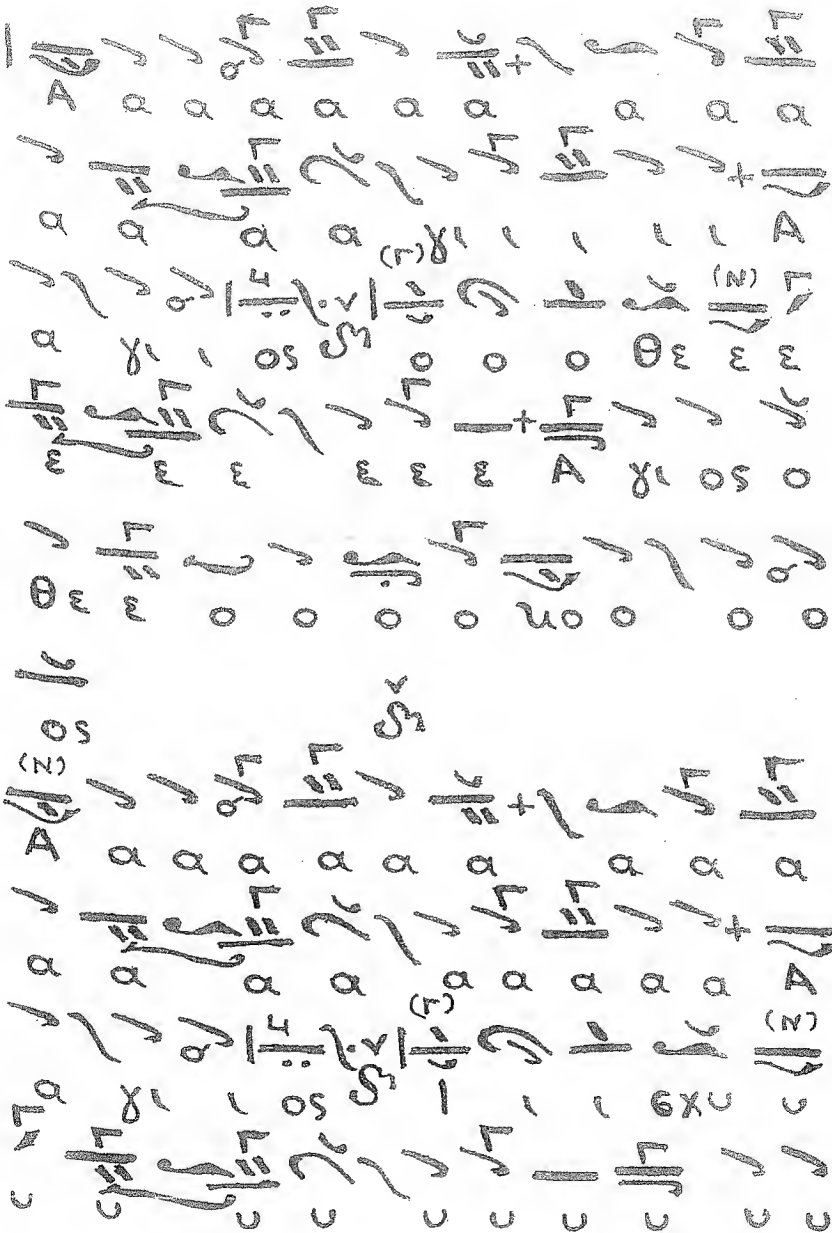 Α α α α α α α α α α
α α α α γι ι ι ι ι Α
(Γ) (Ν)
α γι ι ος ο ο ο Θε ε ε
ε ε ε ε ε ε Α γι ος ο
Θε ε ο ο ο ο υο ο ο ο
ος
(Ν)
Α α α α α α α α α α
α α α α α α α α α Α
(Γ) (Ν)
α γι ι ος Ι ι ι σχυ υ
υ υ υ υ υ υ υ υ υ υ